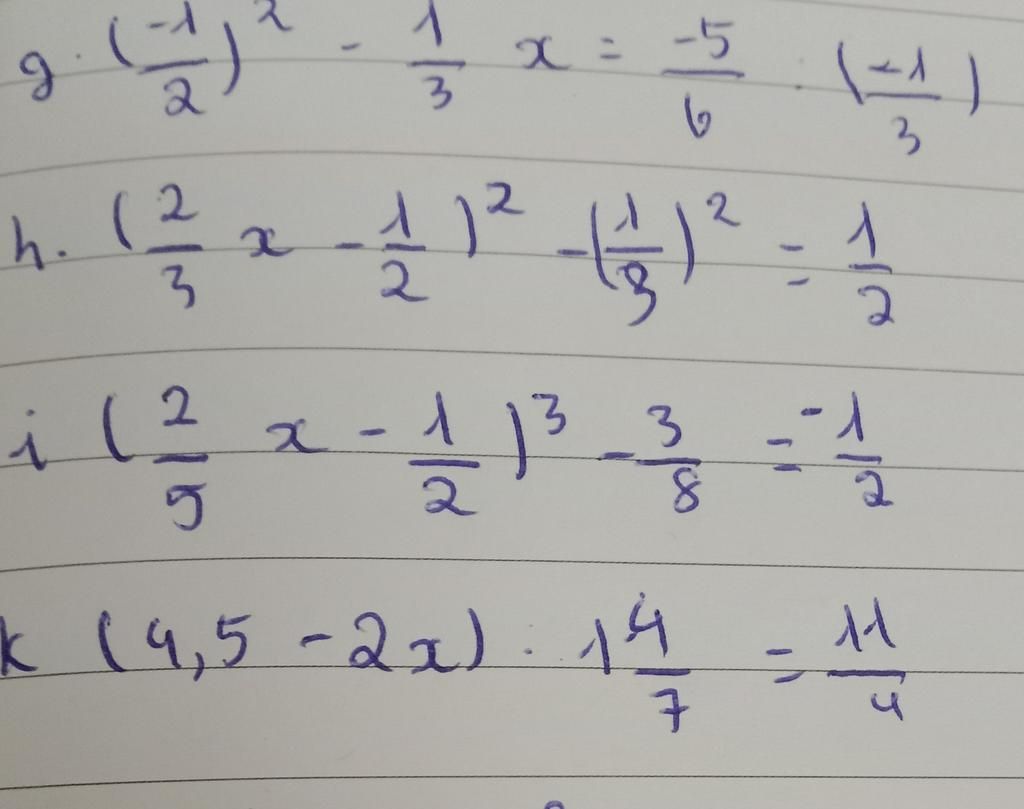 g. (-1/2)² - 1/3 x = -5/6 . (-1/3)
h. (2/3 x - 1/2)² - (1/3)² = 1/2
i (2/5 x - 1/2)³ - 3/8 = -1/2
k (4,5 - 2x) . 1 4/7 = 11/4